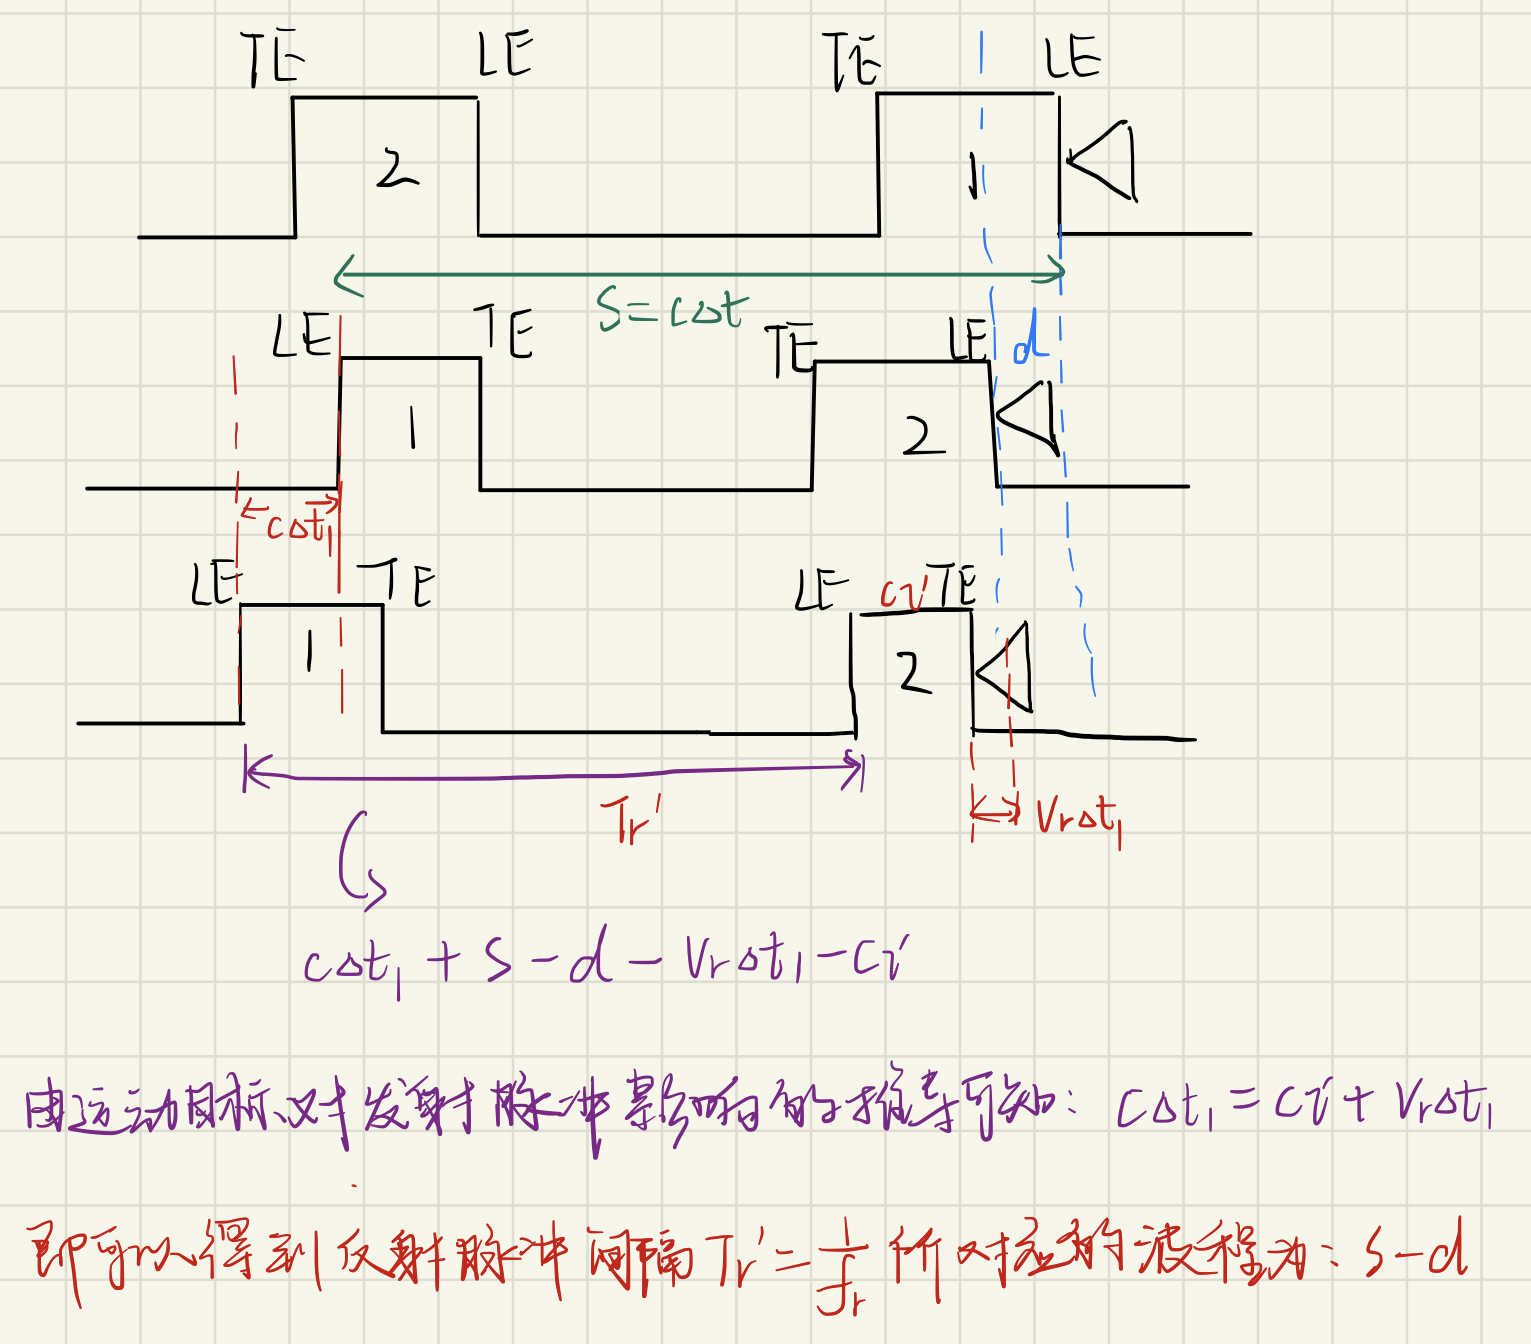 TE LE TE LE
2 1
S=cΔt
LE TE TE LE d
1 2
cΔt₁
LE TE LE cτ' TE
1 2
Tr' VrΔt₁
cΔt₁ + S - d - VrΔt₁ - cτ'
由运动目标对发射脉冲宽影响的推导可知: cΔt₁ = cτ' + VrΔt₁
即可以得到反射脉冲间隔 Tr' = 1/fr 所对应的波程为: S - d